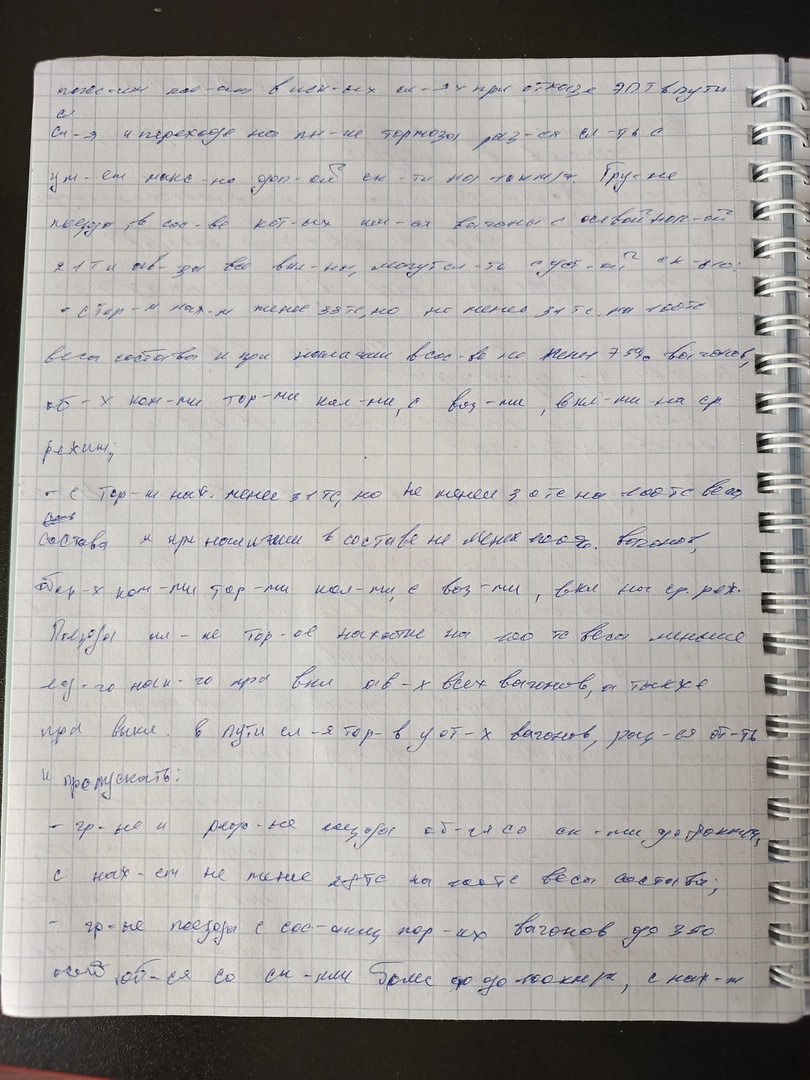 в иск-ых сл-ях при отказе ЭПТ в пути
сл-я и переходе на пн-ие тормоза раз-ся сл-ть с
ум-ем макс-но доп-ой ск-ти на 10км/ч. Гру-не
поезда, в сос-ве кот-ых им-ся вагоны с осевой наг-ой
21т и ав-за все вкл-ны, могут сл-ть с уст-ой ск-ю:
- с тор-м наж-м менее 33тс, но не менее 31тс на 100тс
веса состава и при наличии в сос-ве не менее 75% вагонов,
об-х ком-ми тор-ми кол-ми, с воз-ми, вкл-ми на ср.
режим;
- с тор-м наж. менее 31тс, но не менее 30тс на 100тс веса
состава и при наличии в составе не менее 100%. вагонов,
обор-х ком-ми тор-ми кол-ми, с воз-ми, вкл на ср. реж.
Поезда им-ие тор-ое нажатие на 100 тс веса меньше
ед-го наи-го при вкл ав-х всех вагонов, а также
при выкл. в пути сл-я тор-в у от-х вагонов, раз-ся от-ть
и пропускать:
- гр-не и реф-не поезда об-ся со ск-ми до 90км/ч,
с наж-ем не менее 28тс на 100тс веса состава;
- гр-не поезда с сос-ом пор-их вагонов до 350
осей, об-ся со ск-ми более до 100км/ч, с наж-м